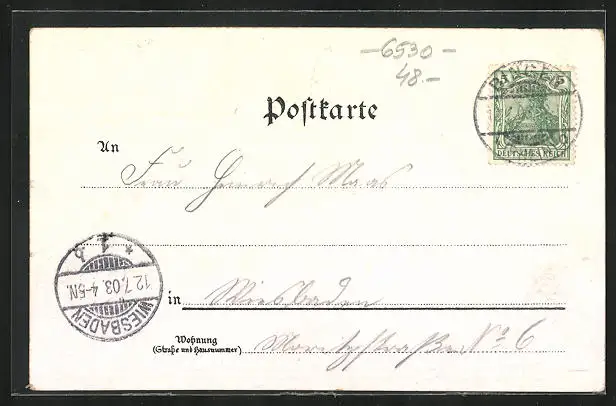 -6530-
48.-
BINGEN
Postkarte
DEUTSCHES REICH
An
Frau Heinrich Maas
* 1 b
12.7.03.4-5N.
WIESBADEN
in Wiesbaden
Wohnung
(Straße und Hausnummer)
Moritzstraße No 6